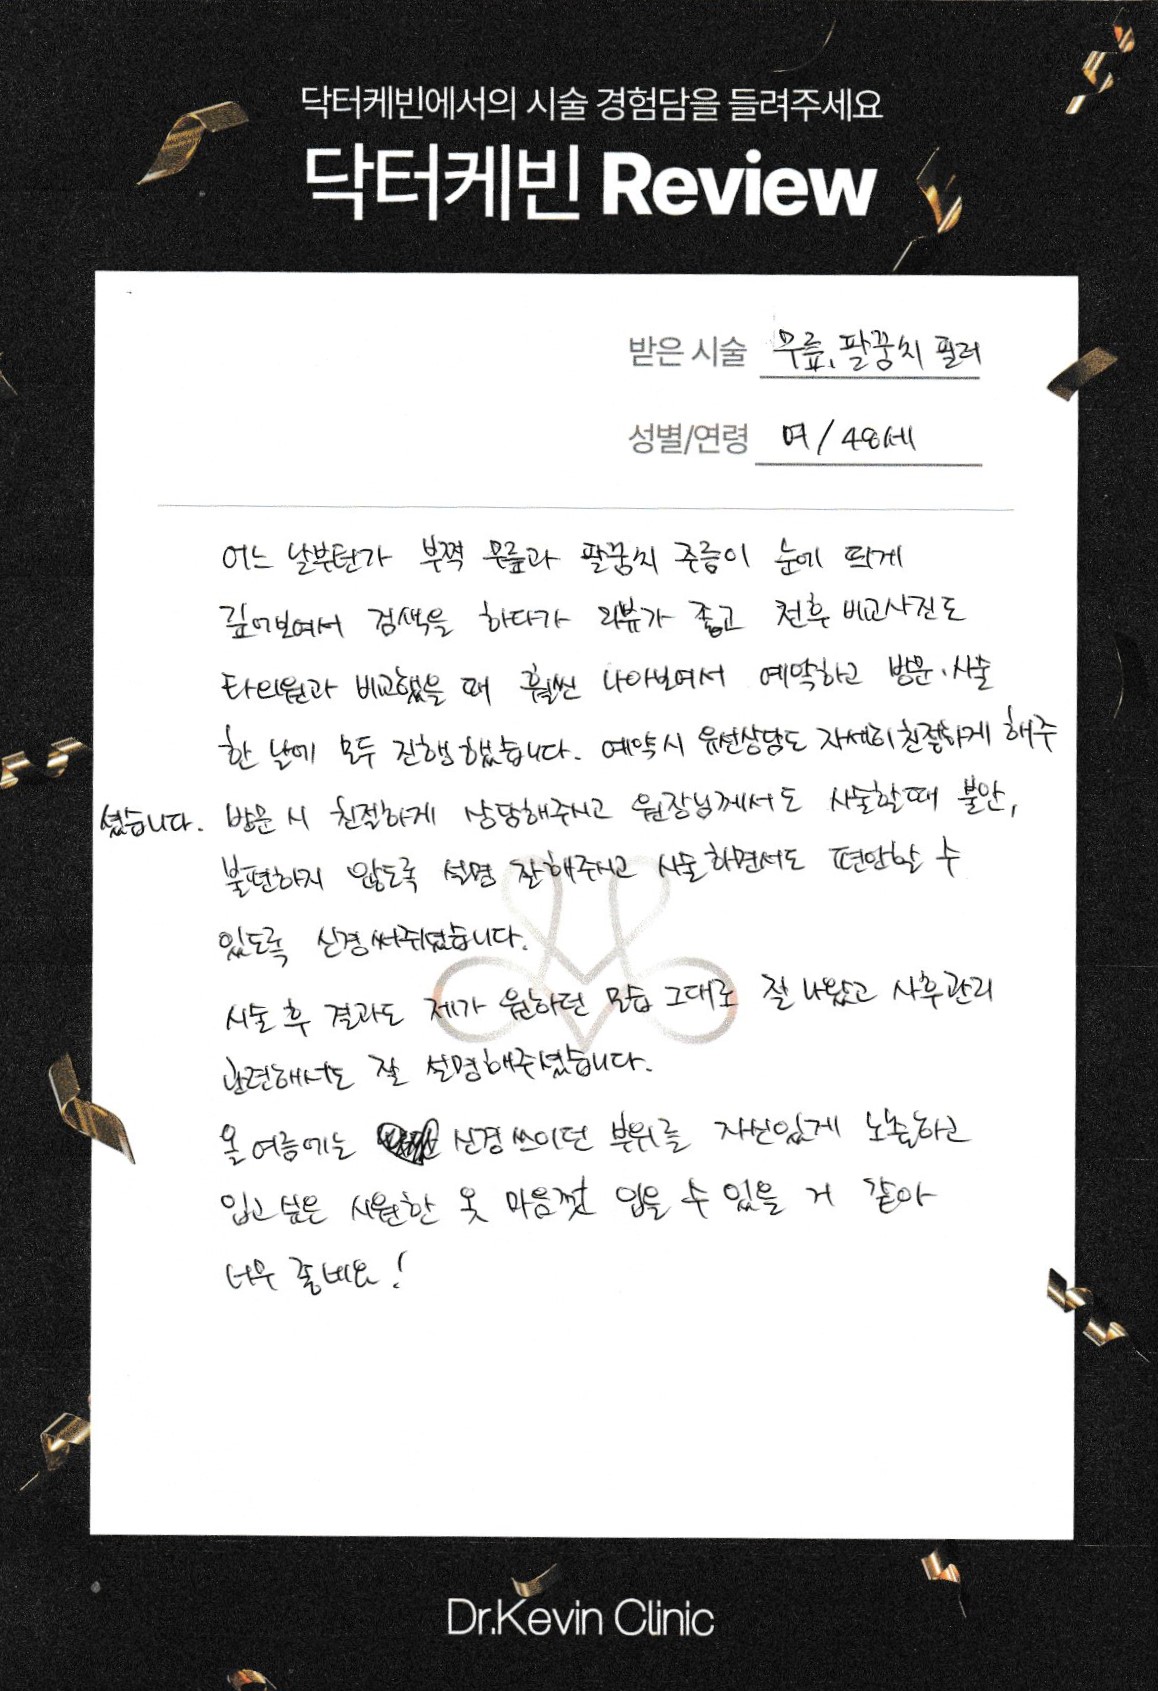 닥터케빈에서의 시술 경험담을 들려주세요
닥터케빈 Review
받은 시술 무릎, 팔꿈치 필러
성별/연령 여 / 48세
어느 날부턴가 부쩍 무릎과 팔꿈치 주름이 눈에 띄게
깊어보여서 검색을 하다가 리뷰가 좋고 전후 비교사진도
타의원과 비교했을 때 훨씬 나아보여서 예약하고 방문·시술
한 날에 모두 진행했습니다. 예약시 유선상담도 자세히 친절하게 해주
셨습니다. 방문 시 친절하게 상담해주시고 원장님께서도 시술할때 불안,
불편하지 않도록 설명 잘해주시고 시술하면서도 편안할 수
있도록 신경써주셨습니다.
시술 후 결과도 제가 원하던 모습 그대로 잘 나왔고 사후관리
관련해서도 잘 설명해주셨습니다.
올 여름에는 신경쓰이던 부위를 자신있게 노출하고
입고 싶은 시원한 옷 마음껏 입을 수 있을 거 같아
너무 좋네요!
Dr.Kevin Clinic